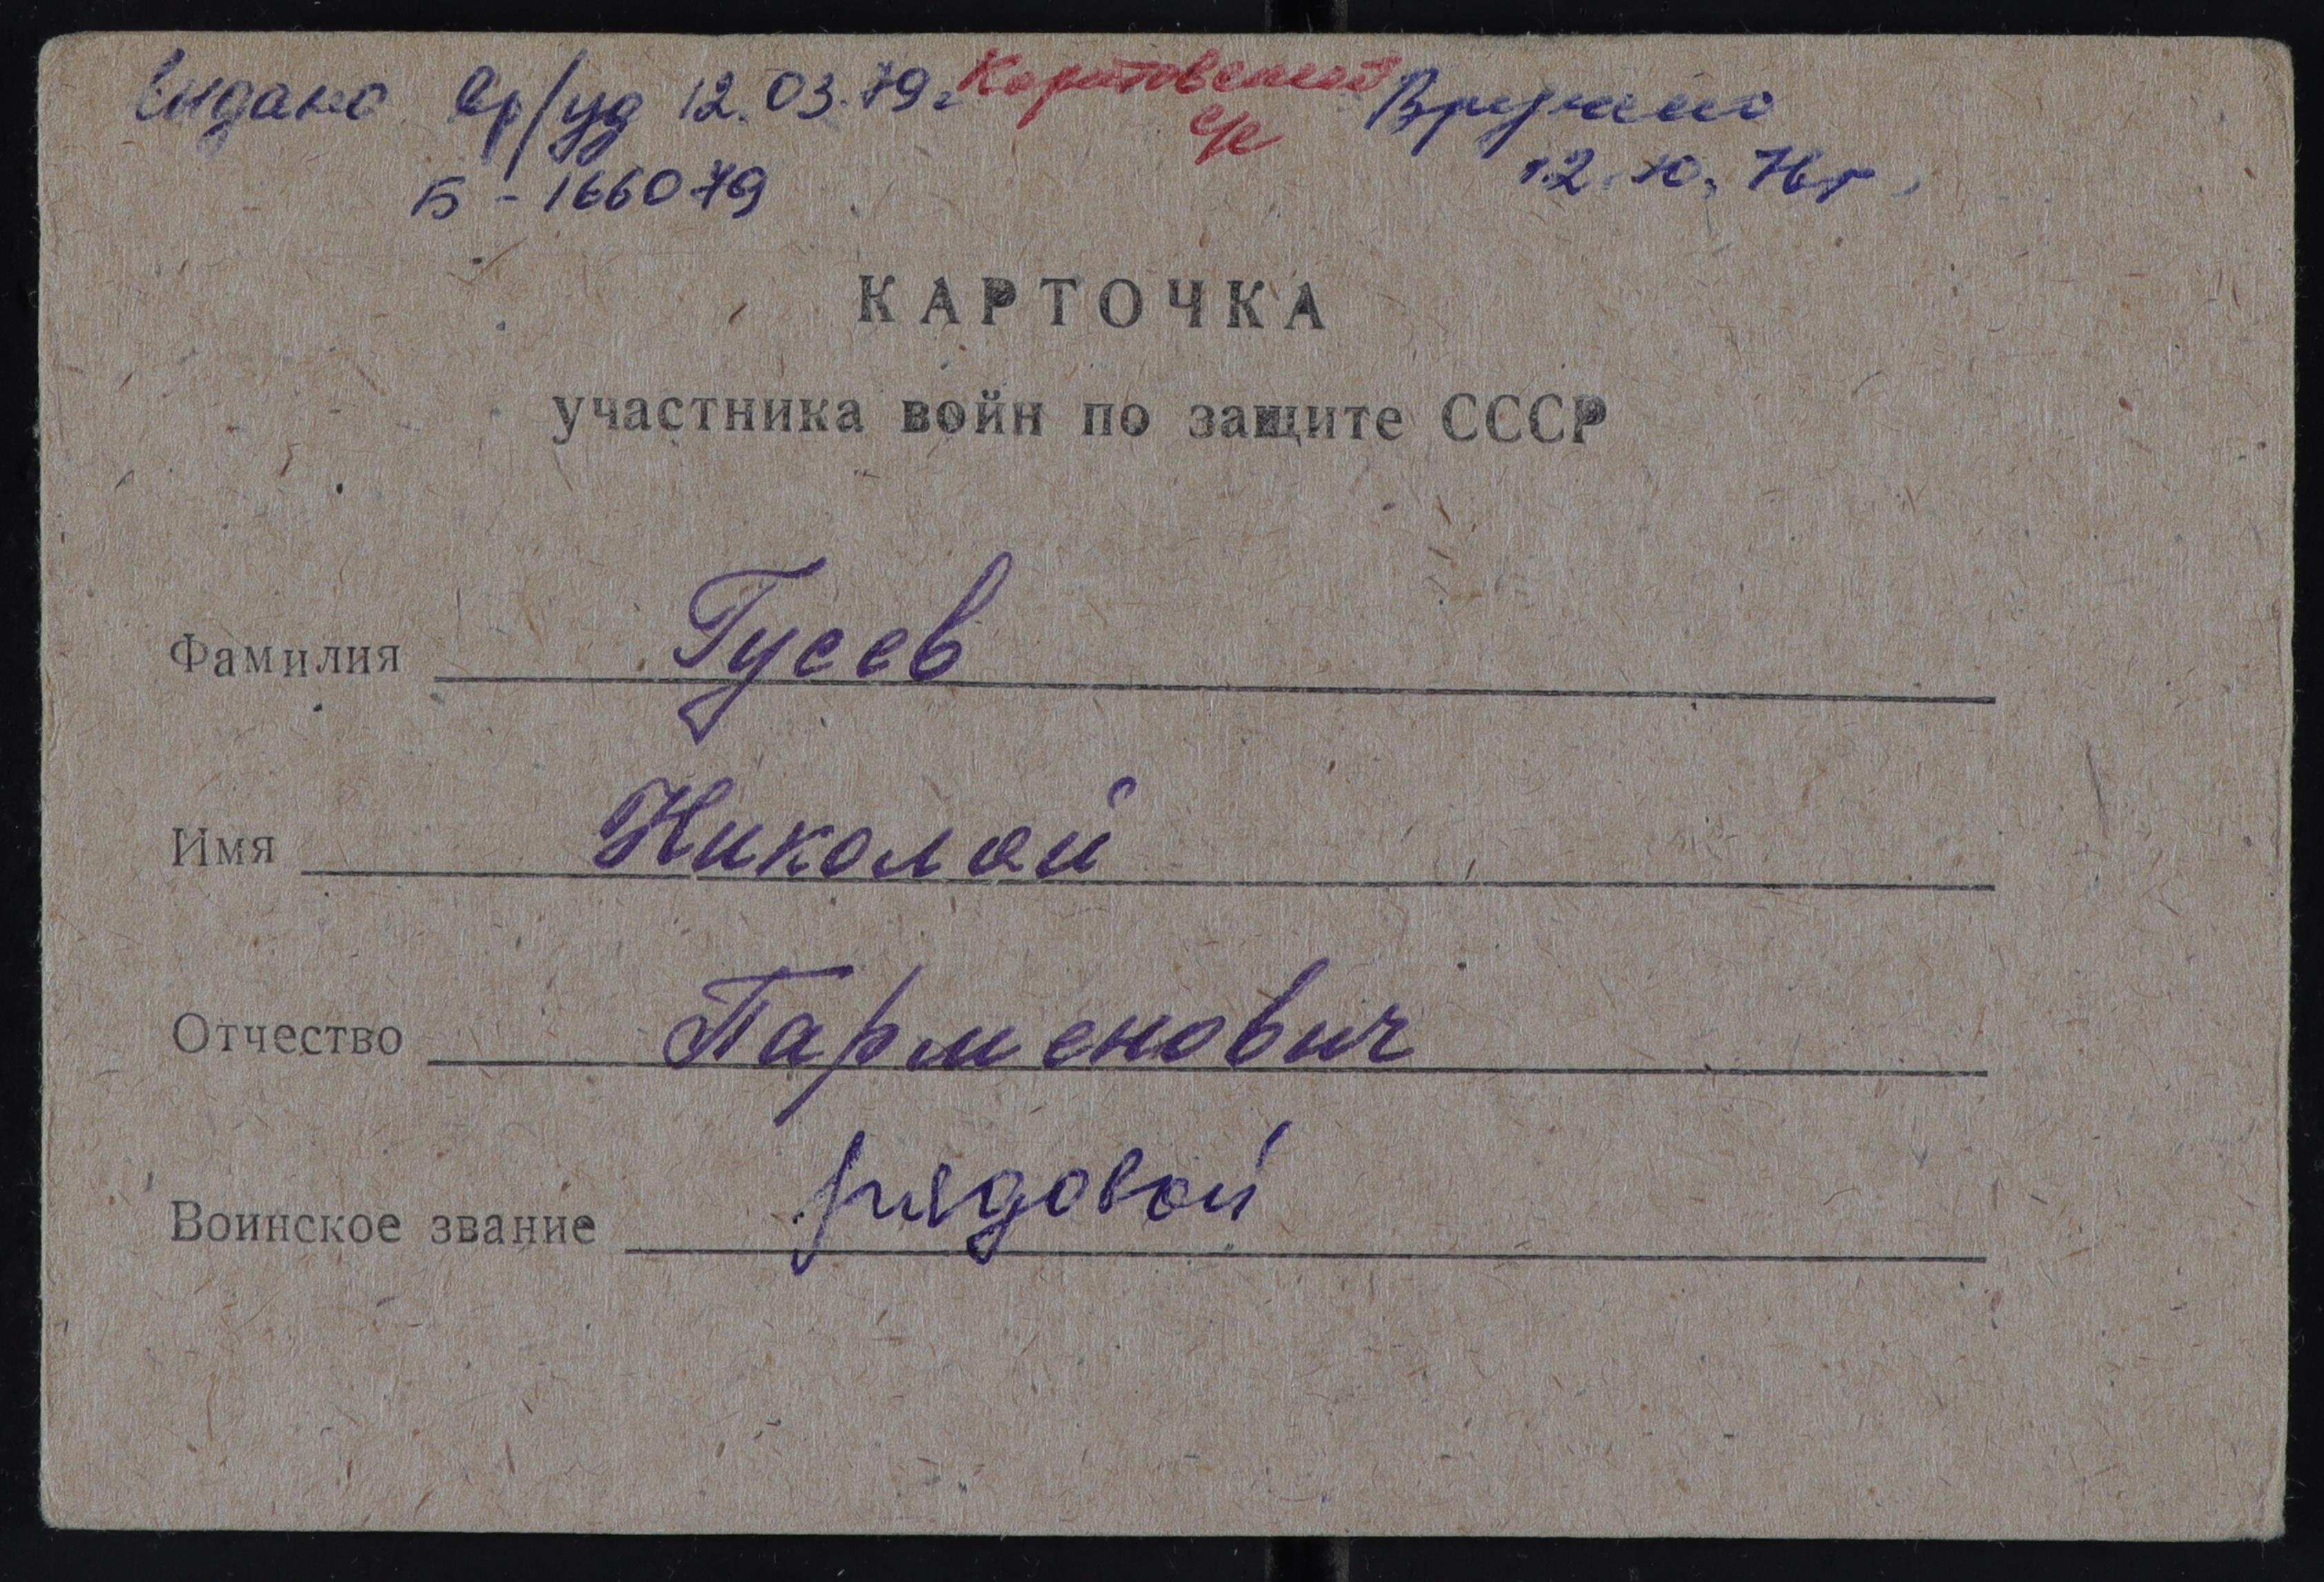 Выдано вр/уд 12.03.79г Вручено
с/с
Б - 166079
12.10.76г.
КАРТОЧКА
участника войн по защите СССР
Фамилия Гусеев
Имя Николай
Отчество Парменович
Воинское звание рядовой